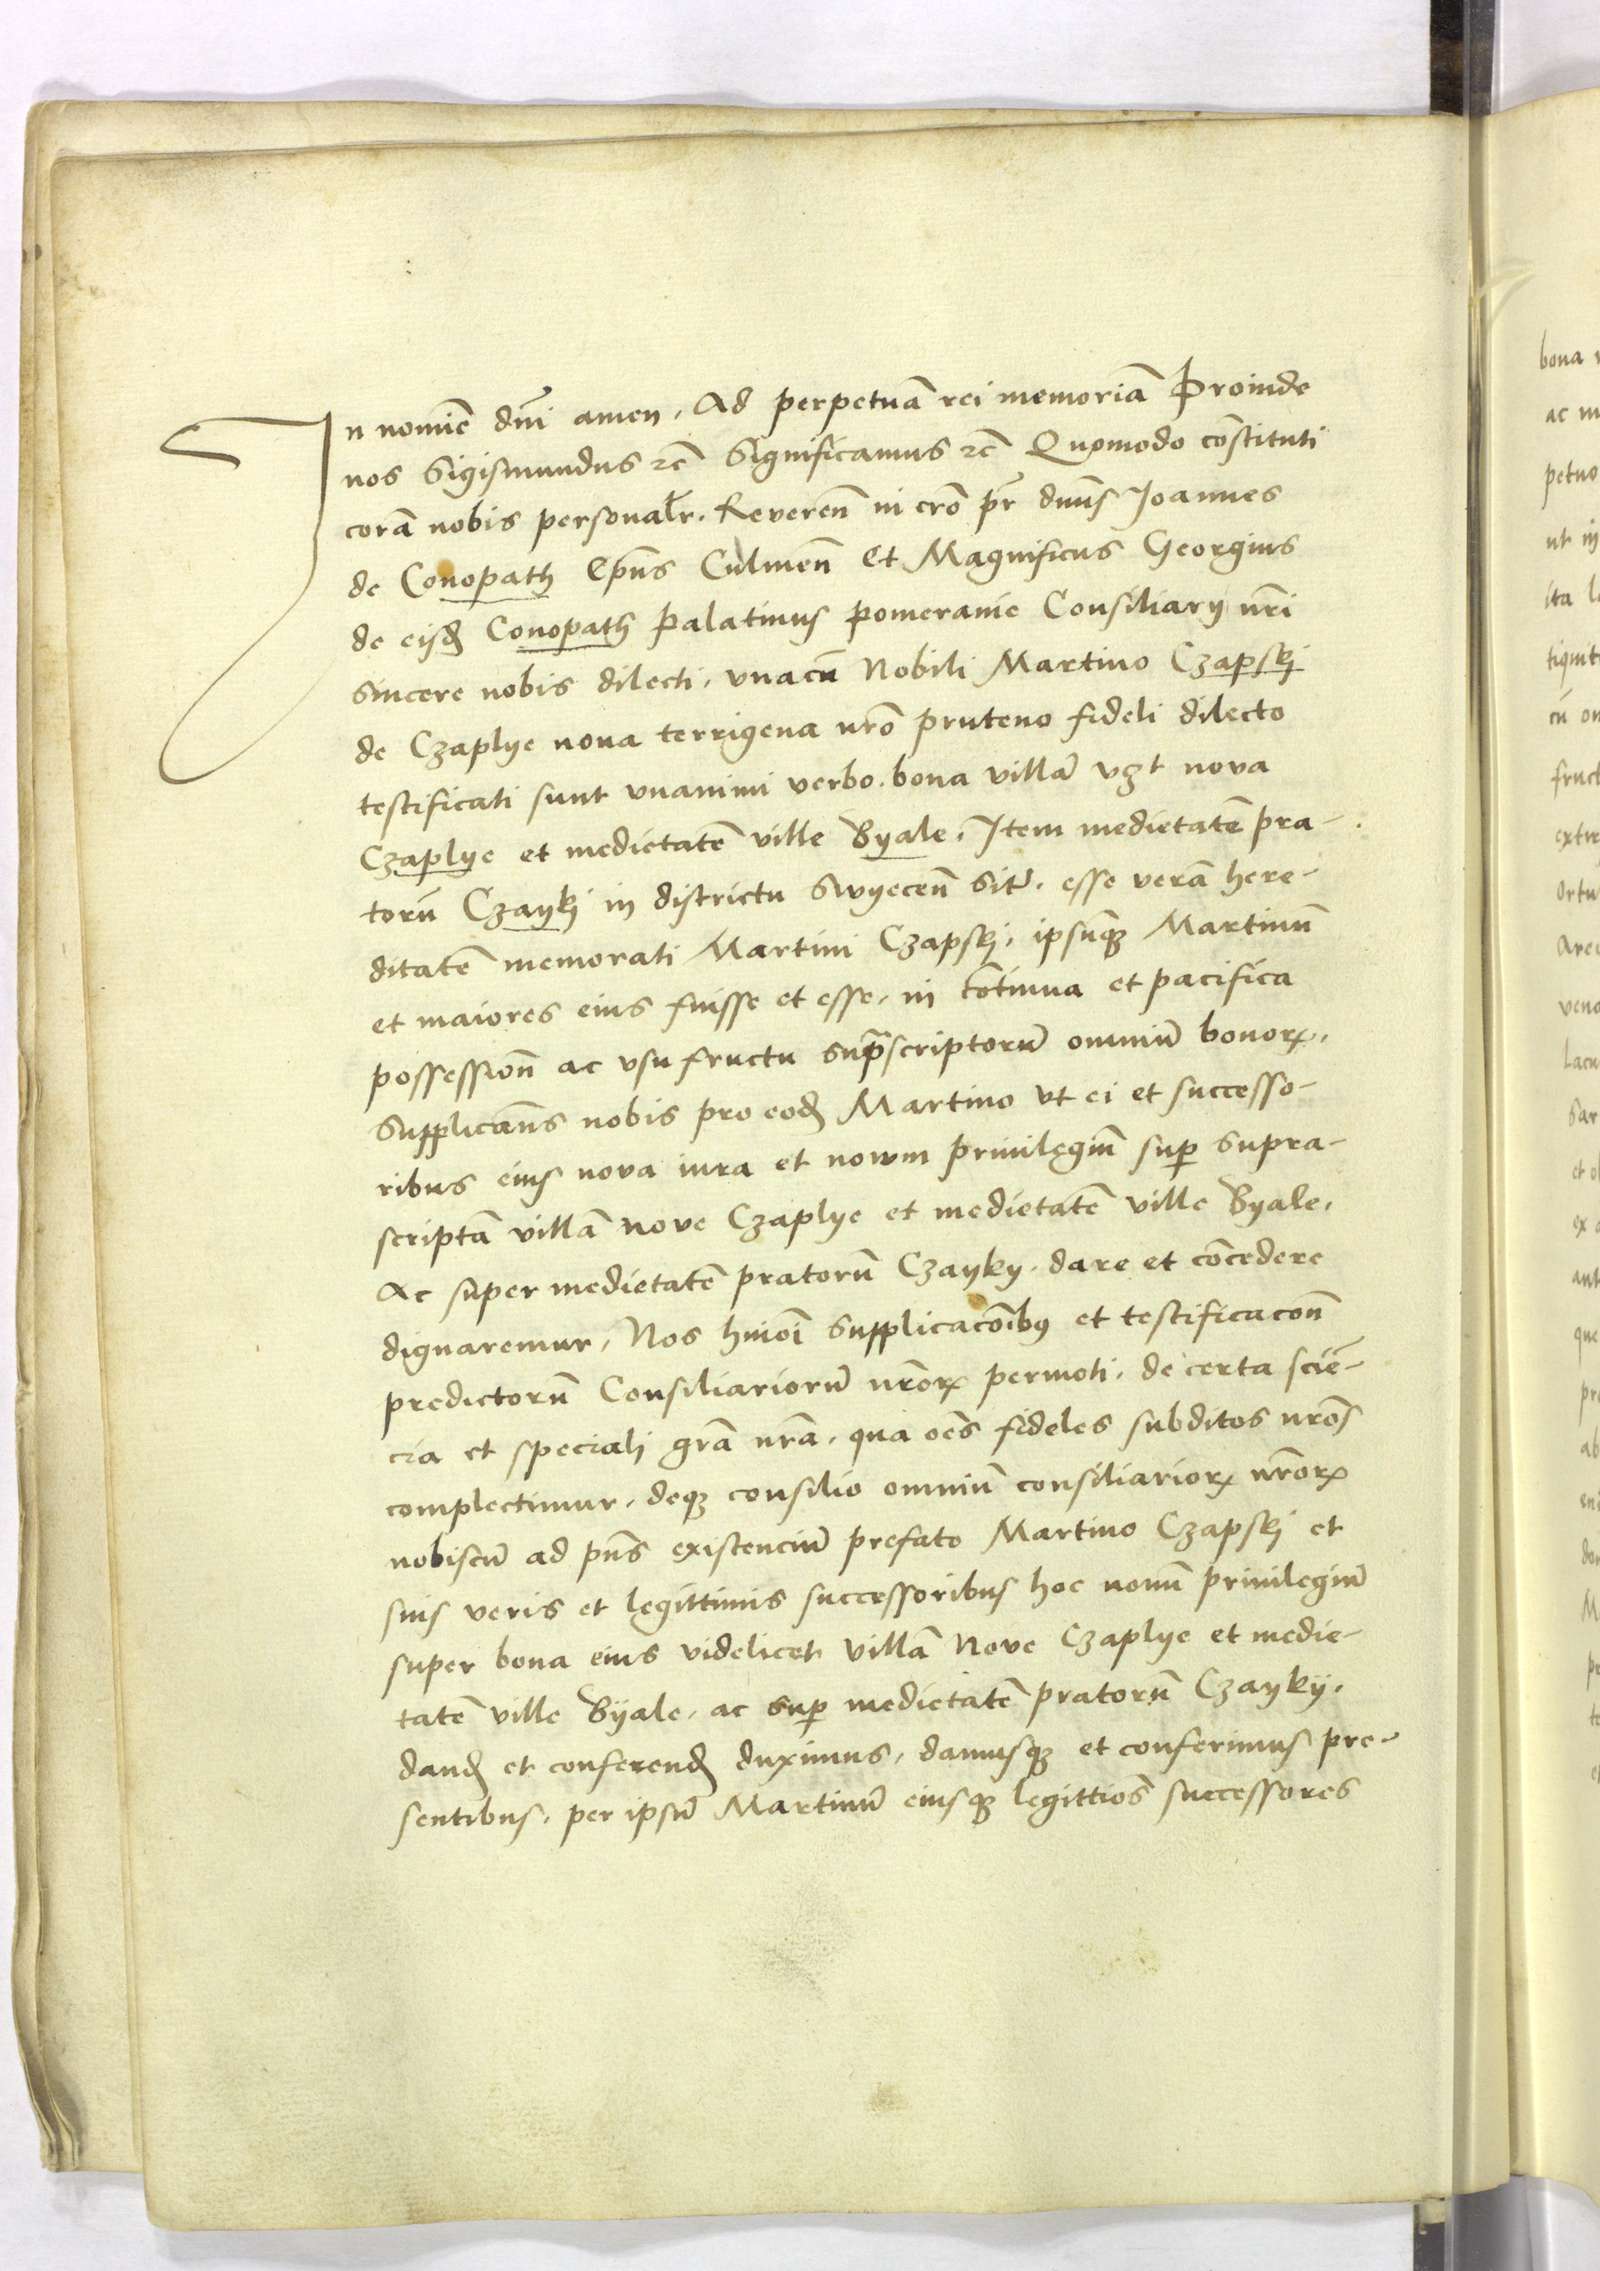 In nomīe dnī amen, Ad perpetuā rei memoriā Proinde
nos Sigismundus rc̄ Significamus rc̄ Quomodo cōstituti
corā nobis personalr. Reveren̄ in cro͞ pr̄ dnūs Ioannes
de Conopath Ep̄us Culmen̄ Et Magnificus Georgius
de eisd Conopath Palatinus Pomeranie Consiliarij nr̄i
sincere nobis dilecti, vnacū Nobili Martino Czapskj
de Czaplye nova terrigena nrō pruteno fideli dilecto
testificati sunt vnanimi verbo. bona villā vzt nova
Czaplye et medietatē ville Byale, Item medietatē pra-
torū Czaykj in districtu Swyecen̄ sit. esse verā here-
ditatē memorati Martini Czapskj, ipsūqȝ Martinū
et maiores eius fuisse et esse, in cōtinua et pacifica
possession̄ ac vsufructu supascriptorū omniū bonoꝝ,
Supplicān̄s nobis pro eod Martino vt ei et successo-
ribus eius nova iura et nowm privilegiū sup supra-
scriptā villā nove Czaplye et medietatē ville Byale,
Ac super medietatē pratorū Czayky, dare et cōcedere
dignaremur, Nos huiōi supplicacōibꝯ et testificacon̄
predictorū Consiliariorū nrōꝝ permoti, de certa sciē-
cia et speciali grā nrā, qua oēs fideles subditos nrōs
complectimur, deqȝ consilio omniū consiliarioꝝ nrōꝝ
nobiscū ad pn̄s existenciū prefato Martino Czapskj et
suis veris et legittimis successoribus hoc novū privilegiū
super bona eius videlicet villā Nove Czaplye et medie-
tatē ville Byale, ac sup medietatē pratorū Czayky,
dand et conferend duximus, damusqȝ et conferimus pre-
sentibus, per ipsū Martinū eiusqȝ legittiōs successores